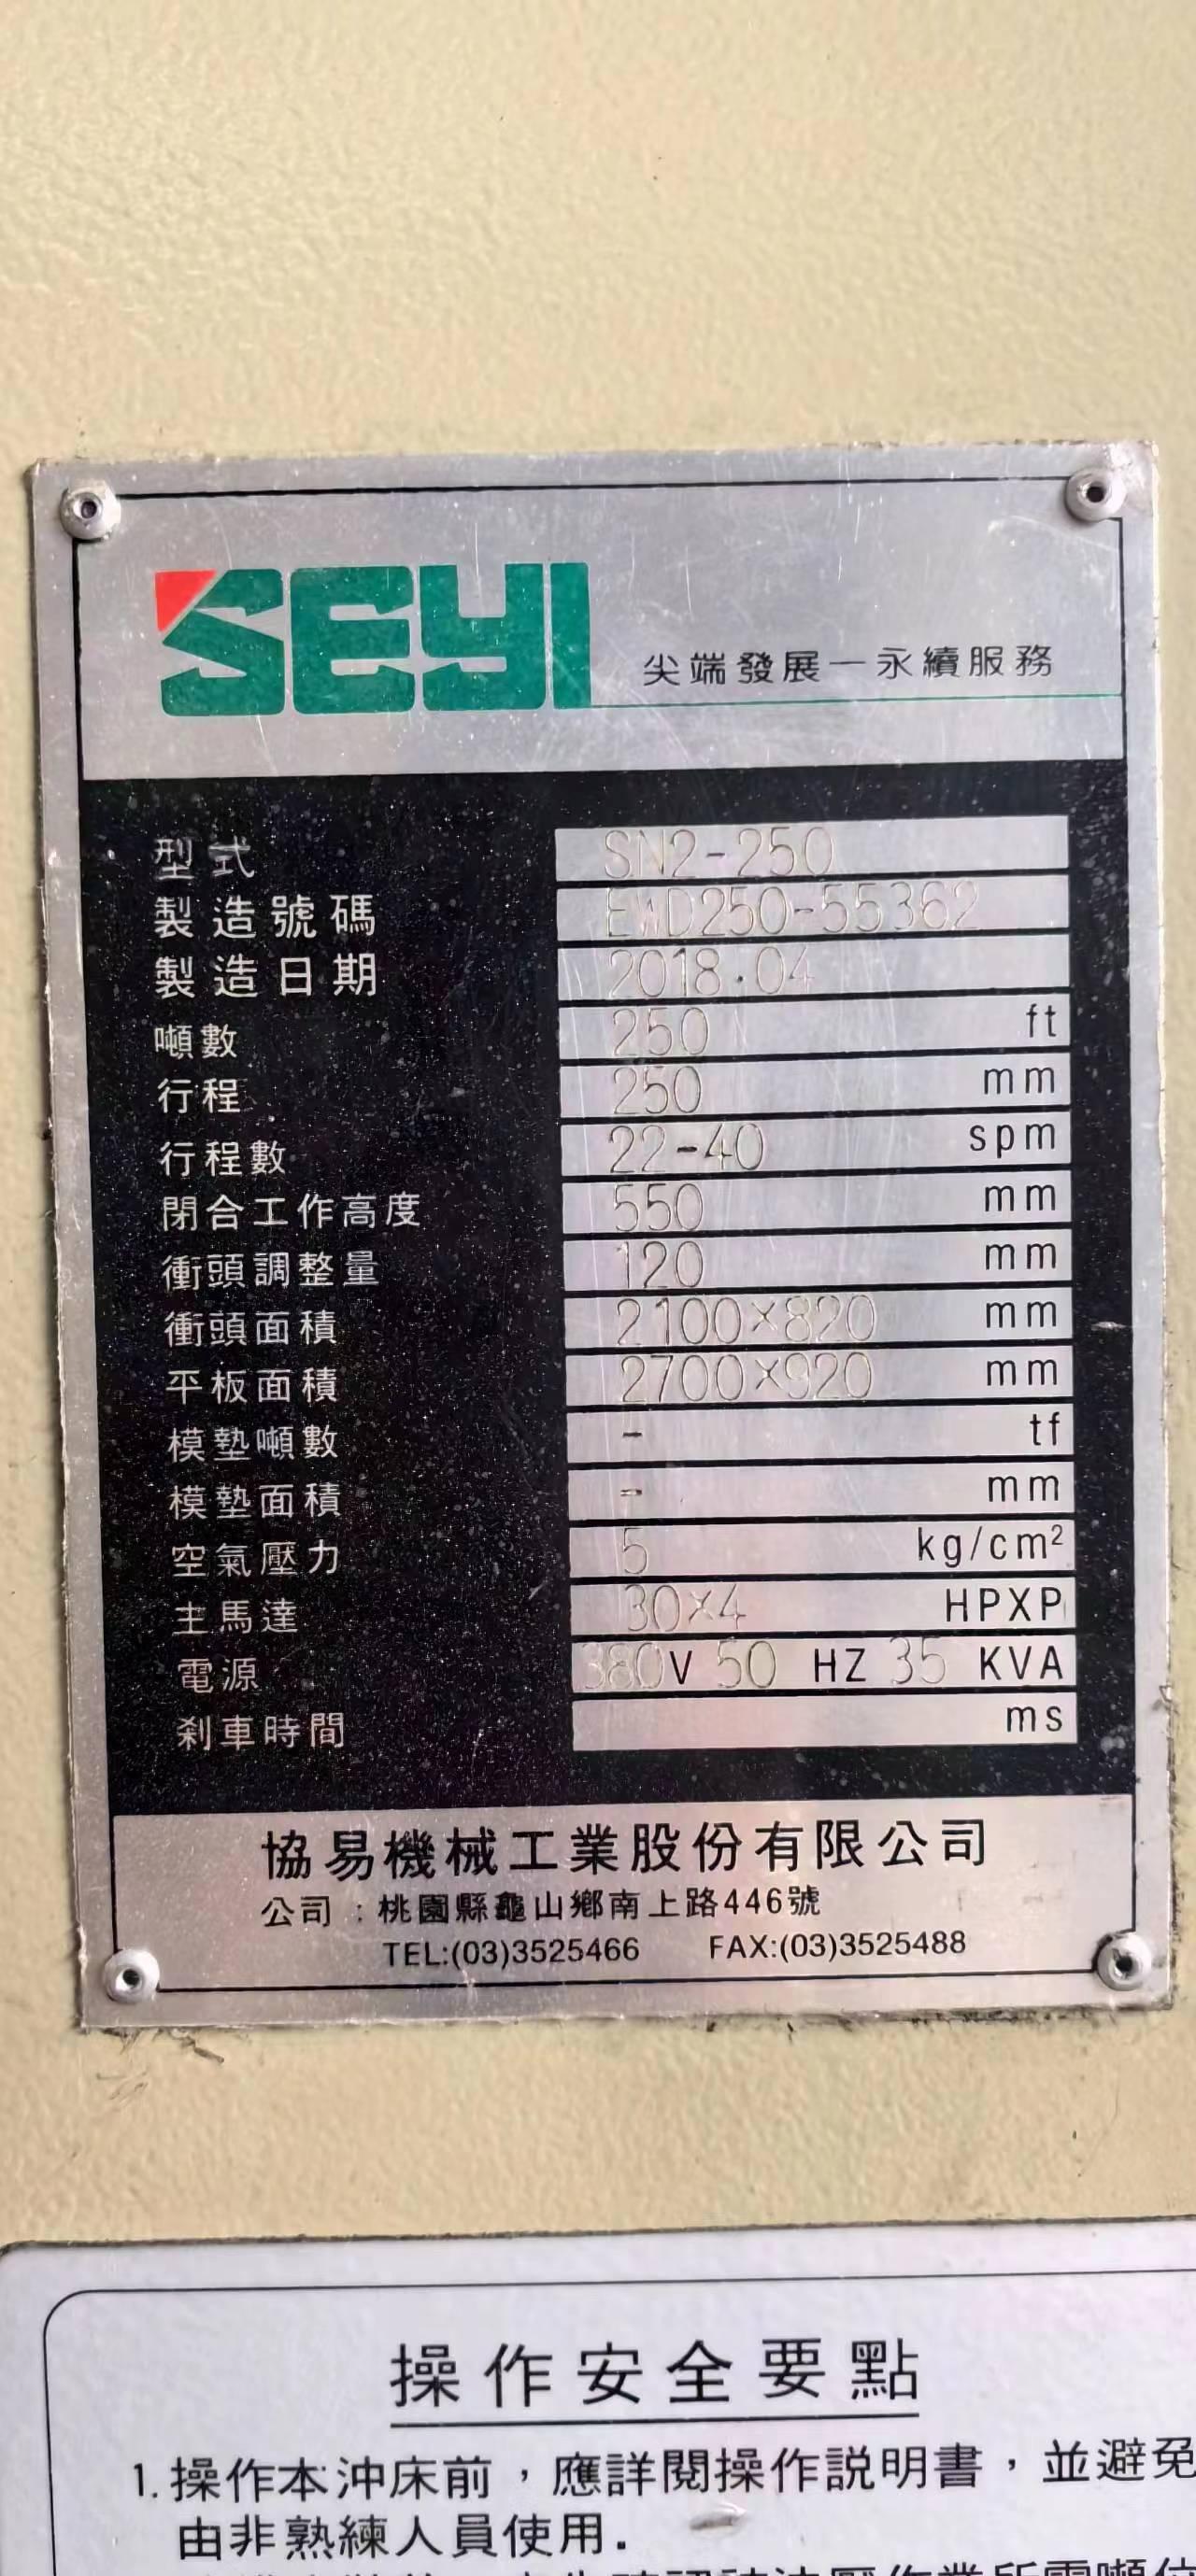 SEYI
尖端發展－永續服務
型式 SN2-250
製造號碼 EWD250-55362
製造日期 2018.04
噸數 250 ft
行程 250 mm
行程數 22-40 spm
閉合工作高度 550 mm
衝頭調整量 120 mm
衝頭面積 2100×820 mm
平板面積 2700×920 mm
模墊噸數 - tf
模墊面積 - mm
空氣壓力 5 kg/cm²
主馬達 30×4 HPXP
電源 380V 50 HZ 35 KVA
剎車時間 ms
協易機械工業股份有限公司
公司：桃園縣龜山鄉南上路446號
TEL:(03)3525466 FAX:(03)3525488
操作安全要點
1. 操作本沖床前，應詳閱操作説明書，並避免
由非熟練人員使用.